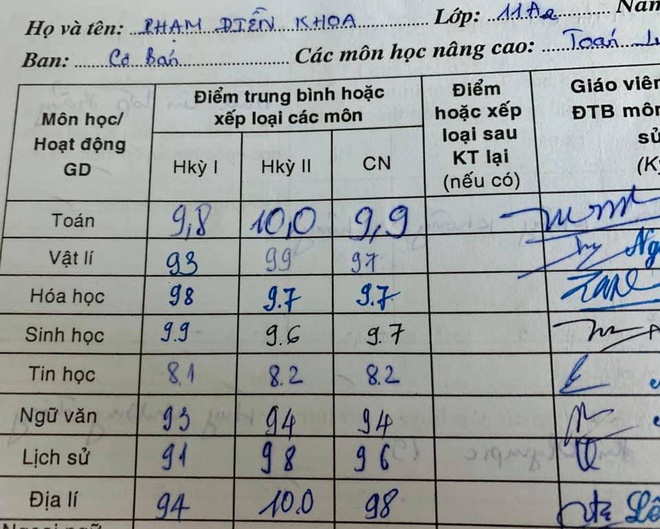 Họ và tên: PHAM DIỄN KHOA Lớp: 11A2 Năm
Ban: Cơ Bản Các môn học nâng cao: Toán
Môn học/ Hoạt động GD
Điểm trung bình hoặc xếp loại các môn
Điểm hoặc xếp loại sau KT lại (nếu có)
Giáo viên
ĐTB môn
sử
(K
Hkỳ I Hkỳ II CN
Toán 9,8 10,0 9,9
Vật lí 93 99 97
Hóa học 98 9.7 9.7
Sinh học 9.9 9.6 9.7
Tin học 8.1 8.2 8.2
Ngữ văn 93 94 94
Lịch sử 91 98 96
Địa lí 94 10.0 98 Lê
Ngoại ngữ